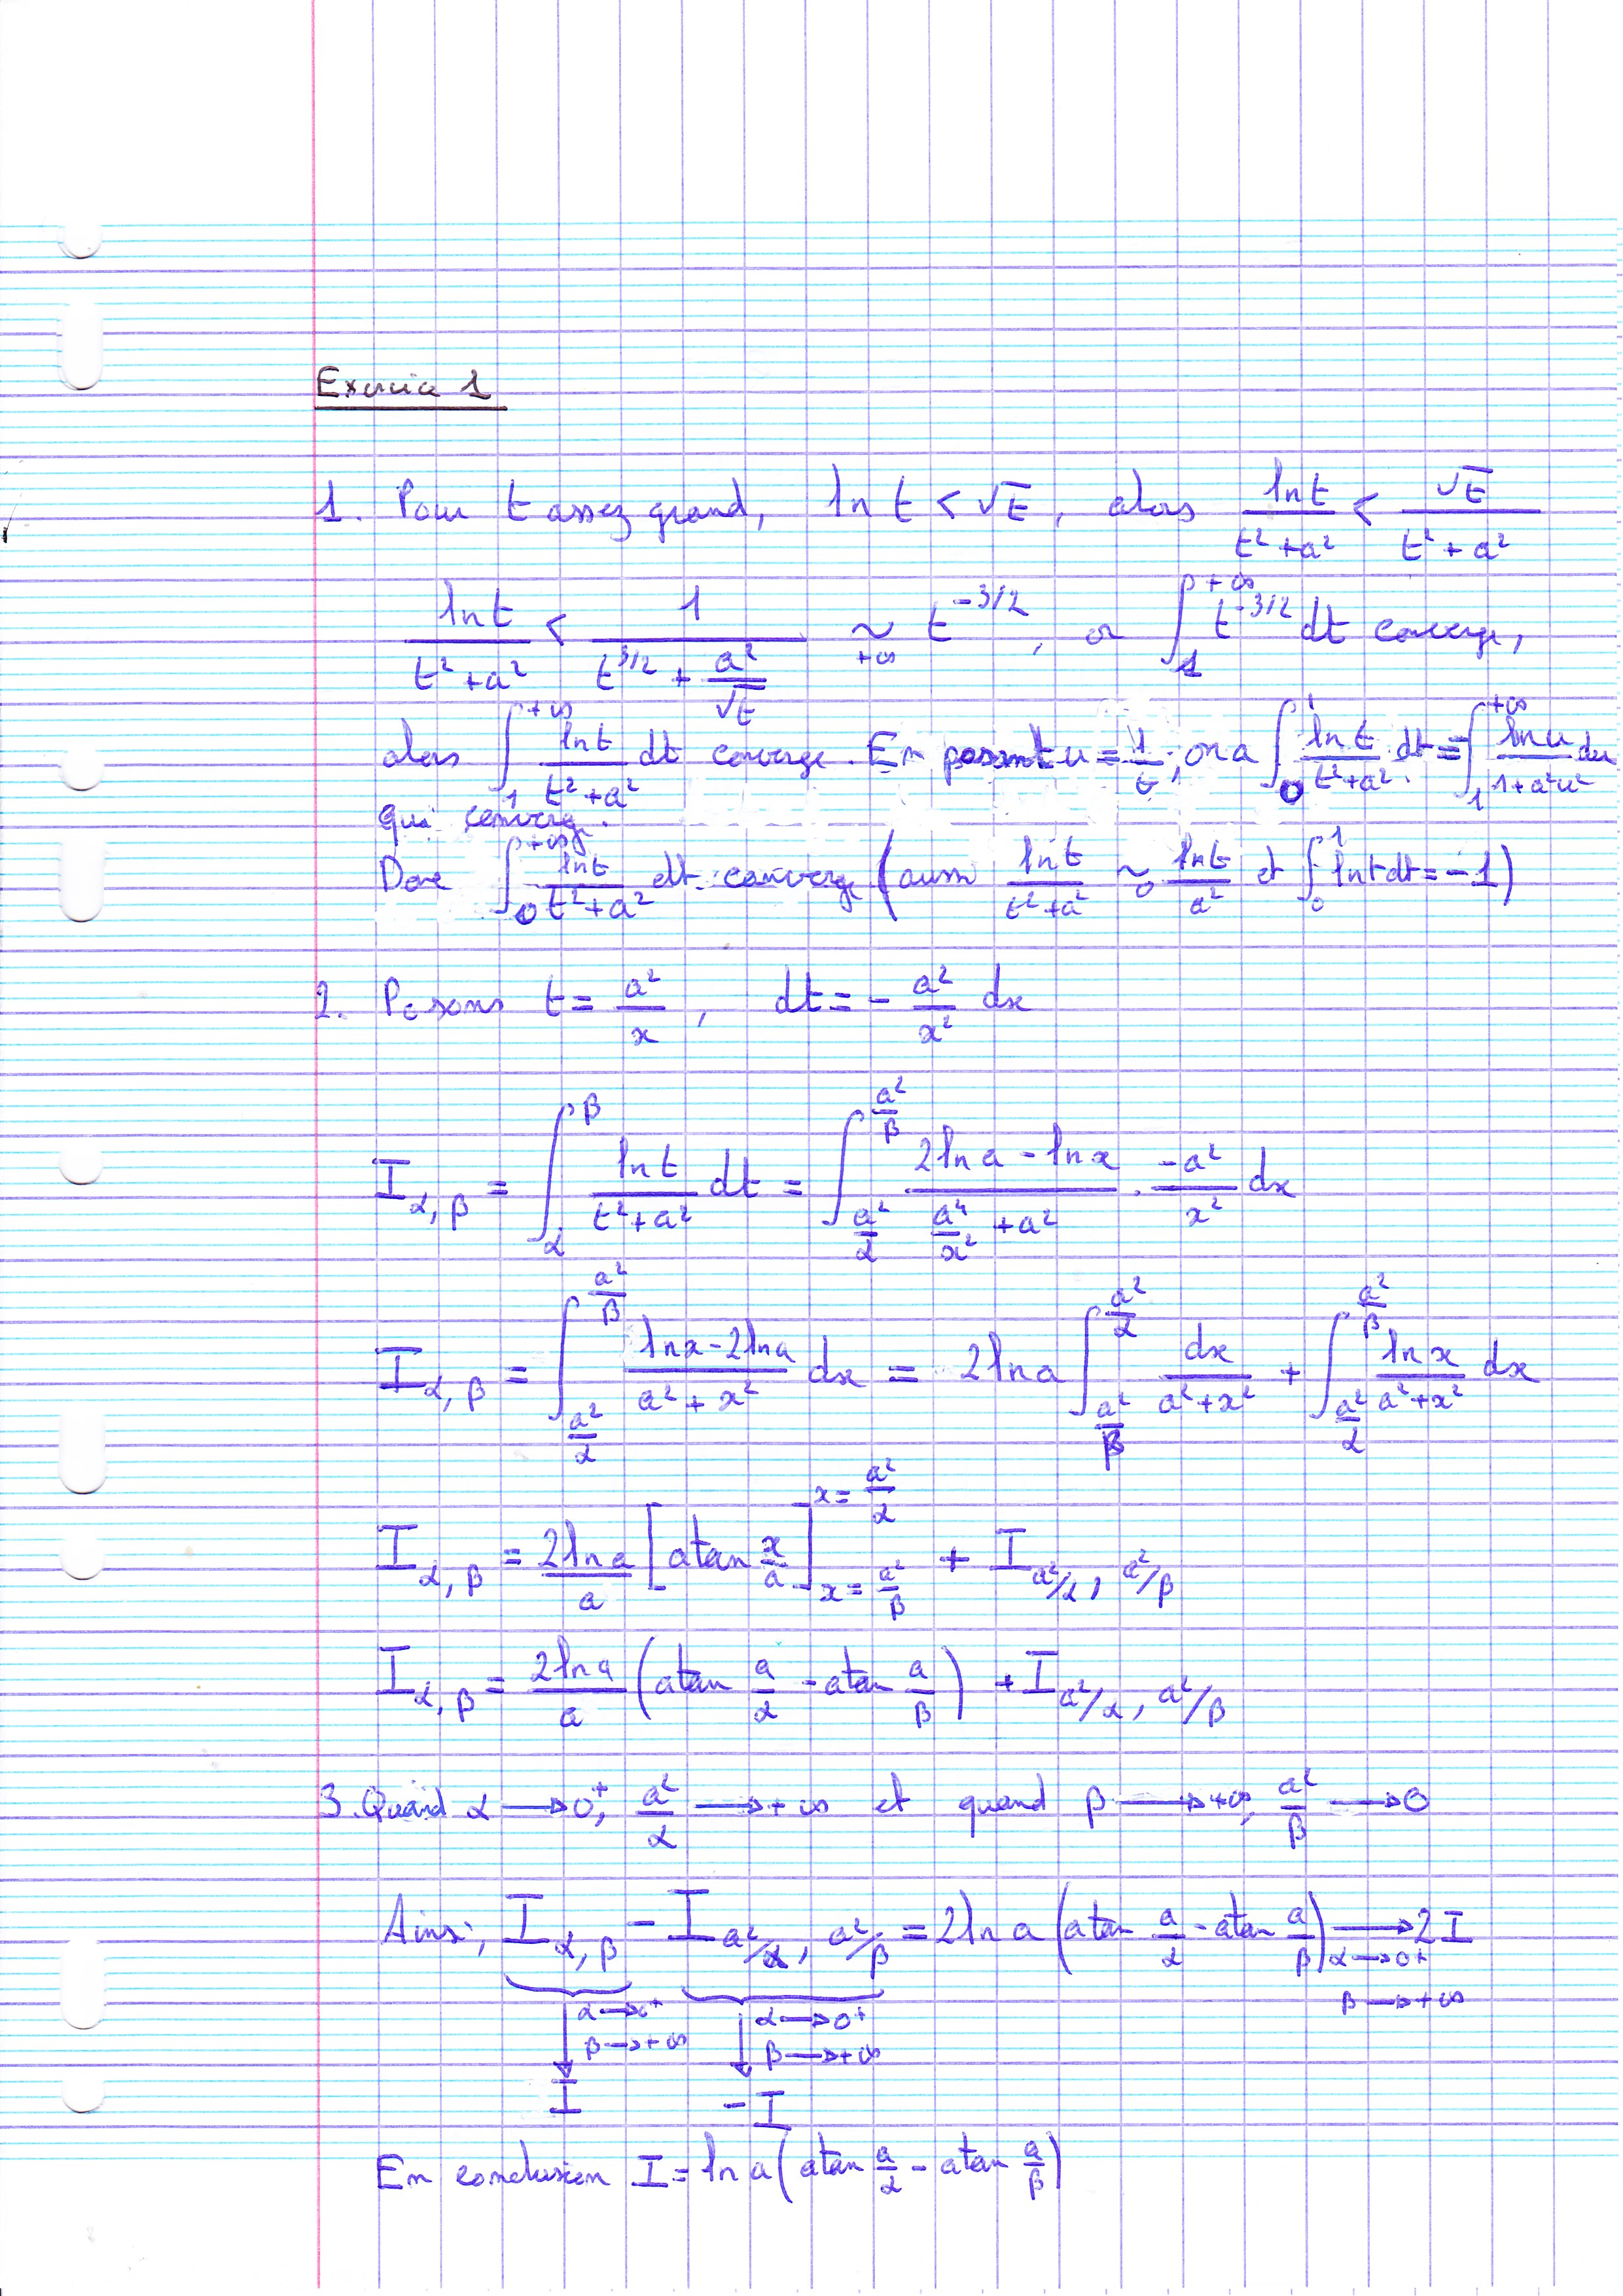 Exercice 1
1. Pour t assez grand, ln t < √t, alors ln t / (t² + a²) < √t / (t² + a²)
ln t / (t² + a²) < 1 / (t^{3/2} + a²/√t) ~_{+∞} t^{-3/2}, or ∫_1^{+∞} t^{-3/2} dt converge,
alors ∫_1^{+∞} ln t / (t² + a²) dt converge. En posant u = 1/t, on a ∫_0^1 ln t / (t² + a²) dt = -∫_1^{+∞} ln u / (1 + a²u²) du
qui converge.
Donc ∫_0^{+∞} ln t / (t² + a²) dt converge (aussi ln t / (t² + a²) ~_0 ln t / a² et ∫_0^1 ln t dt = -1)
2. Posons t = a²/x, dt = - a²/x² dx
I_{α, β} = ∫_α^β ln t / (t² + a²) dt = ∫_{a²/α}^{a²/β} (2 ln a - ln x) / (a⁴/x² + a²) . -a²/x² dx
I_{α, β} = ∫_{a²/α}^{a²/β} (ln x - 2 ln a) / (a² + x²) dx = 2 ln a ∫_{a²/β}^{a²/α} dx / (a² + x²) + ∫_{a²/α}^{a²/β} ln x / (a² + x²) dx
I_{α, β} = 2 ln a / a [atan x/a]_{x = a²/β}^{x = a²/α} + I_{a²/α, a²/β}
I_{α, β} = 2 ln a / a (atan a/α - atan a/β) + I_{a²/α, a²/β}
3. Quand α → 0⁺, a²/α → +∞ et quand β → +∞, a²/β → 0
Ainsi, I_{α, β} - I_{a²/α, a²/β} = 2 ln a (atan a/α - atan a/β) → 2 I
α → 0⁺ α → 0⁺ α → 0⁺
β → +∞ β → +∞ β → +∞
I -I
En conclusion I = ln a (atan a/α - atan a/β)